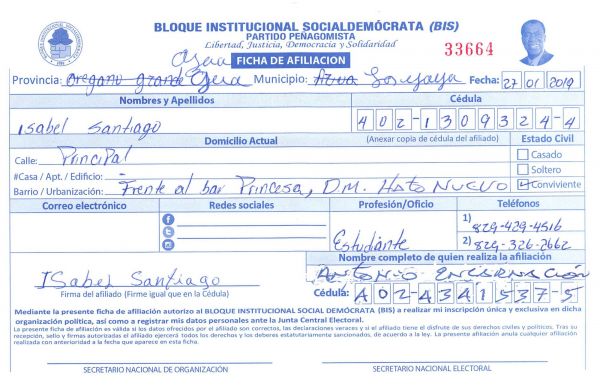 BLOQUE INSTITUCIONAL SOCIALDEMÓCRATA (BIS)
PARTIDO PEÑAGOMISTA
Libertad, Justicia, Democracia y Solidaridad
33664
FICHA DE AFILIACION
Provincia: Municipio: Fecha: 27 01 2019
Nombres y Apellidos Cédula
Isabel Santiago 402-1309324-4
Domicilio Actual (Anexar copia de cédula del afiliado) Estado Civil
Calle: Principal Casado
#Casa / Apt. / Edificio: Soltero
Barrio / Urbanización: Frente al bar Princesa, DM. Hato Nuevo Conviviente
Correo electrónico Redes sociales Profesión/Oficio Teléfonos
1) 829-429-4516
Estudiante 2) 829-326-2662
Nombre completo de quien realiza la afiliación
Isabel Santiago Antonio Encarnación
Firma del afiliado (Firme igual que en la Cédula) Cédula: 402-4341537-5
Mediante la presente ficha de afiliación autorizo al BLOQUE INSTITUCIONAL SOCIAL DEMÓCRATA (BIS) a realizar mi inscripción única y exclusiva en dicha
organización política, así como a registrar mis datos personales ante la Junta Central Electoral.
La presente ficha de afiliación es válida si los datos ofrecidos por el afiliado son correctos, las declaraciones veraces y si el afiliado tiene el disfrute de sus derechos civiles y políticos. Tras su
recepción, sello y firmas autorizadas el afiliado ejercerá todos los derechos y los deberes estatutariamente sancionados, de acuerdo a la ley. La presente afiliación anula cualquier afiliación
realizada con anterioridad a la fecha que aparece en esta ficha.
SECRETARIO NACIONAL DE ORGANIZACIÓN SECRETARIO NACIONAL ELECTORAL